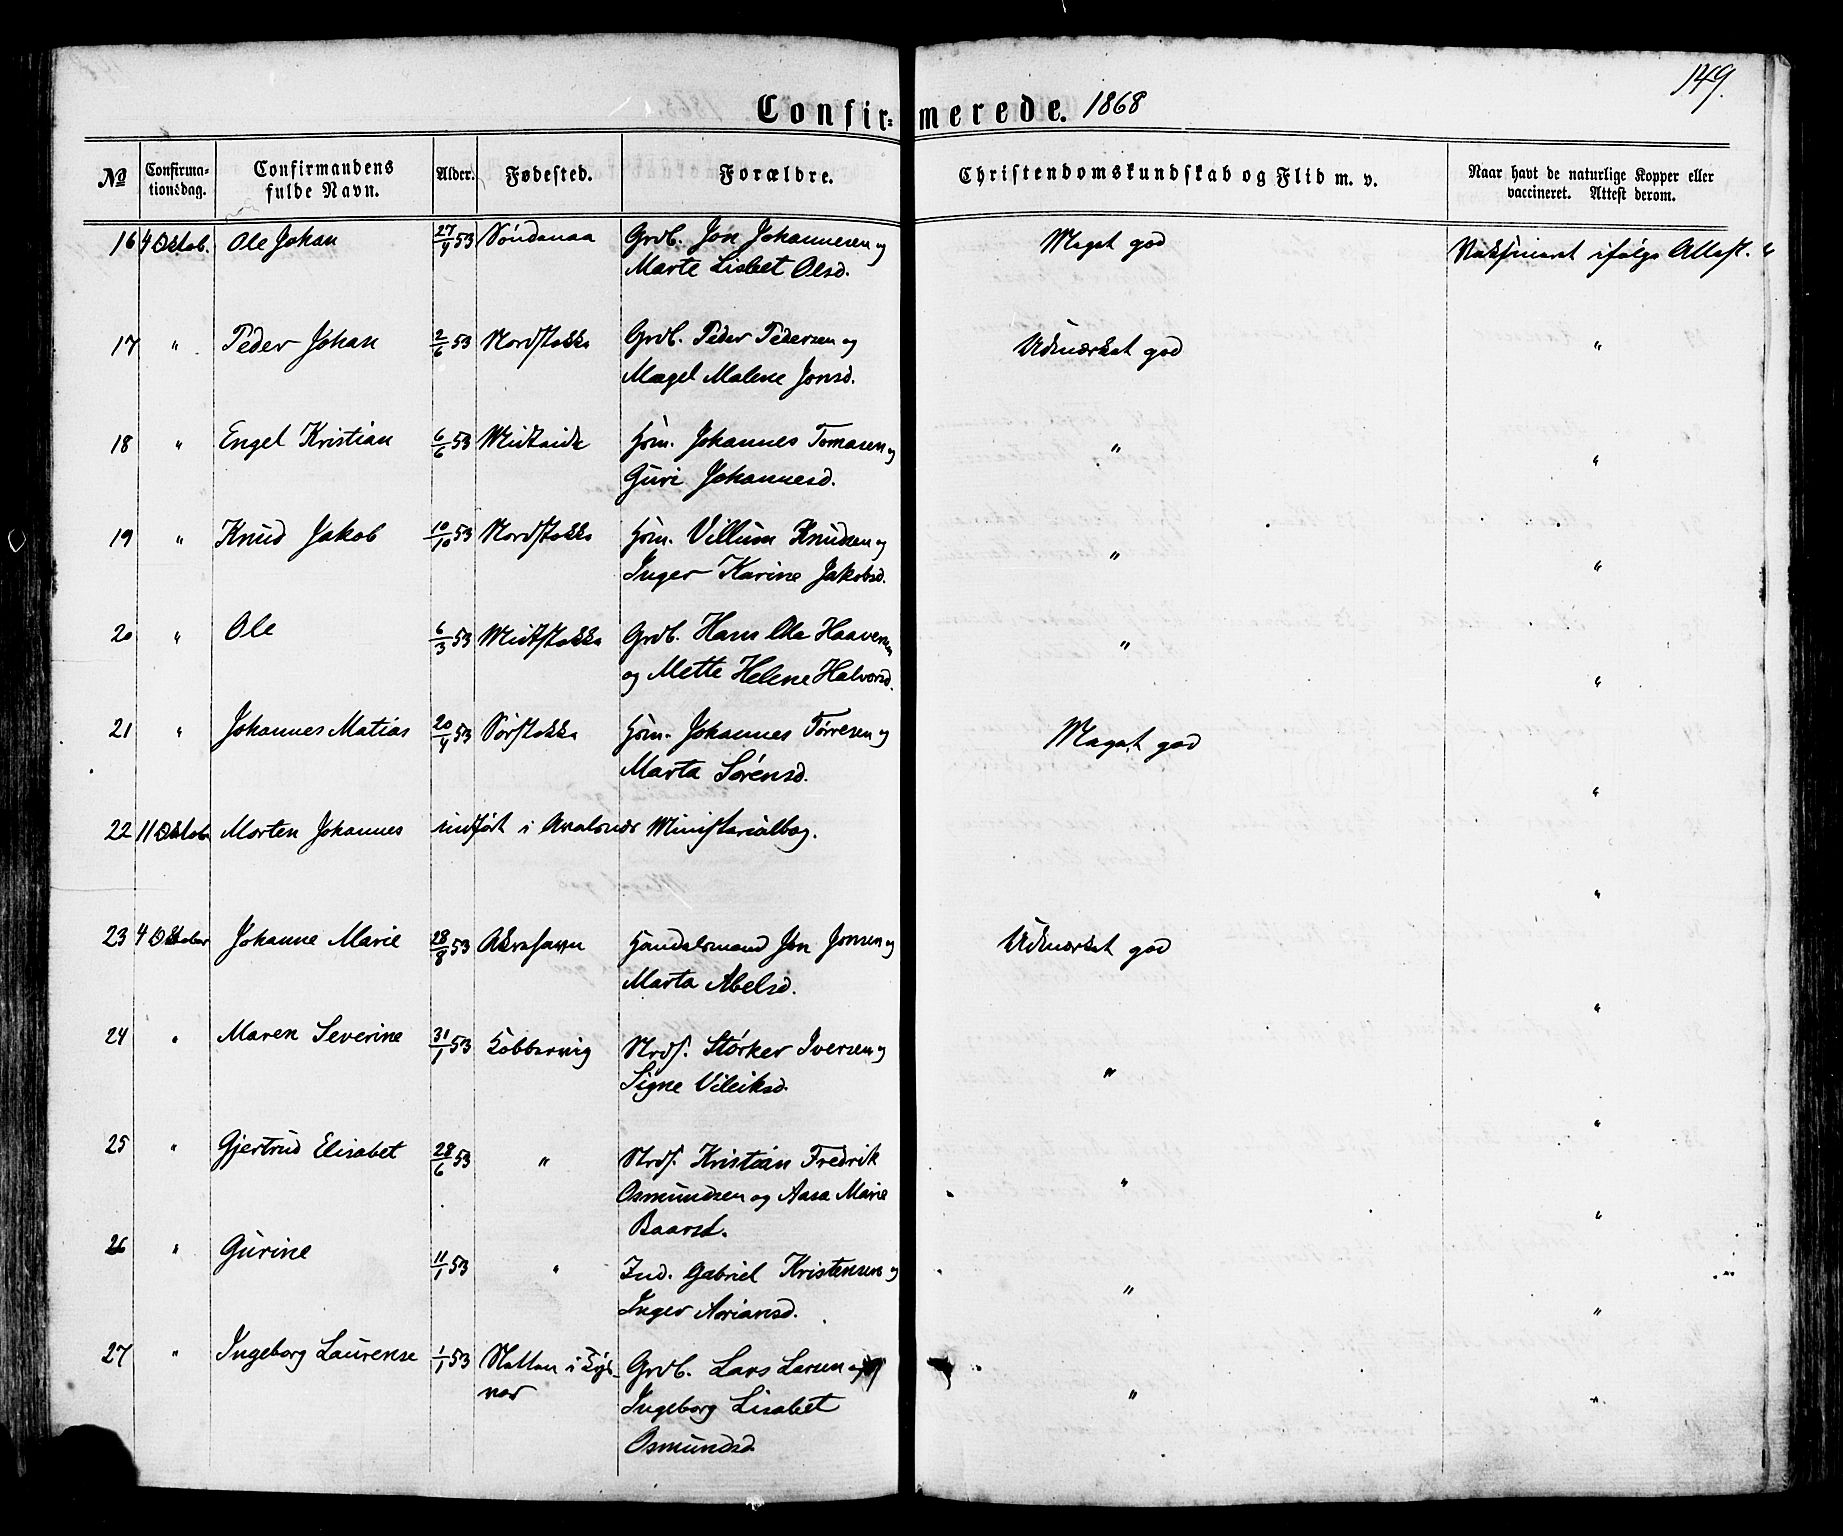 149.
Confir- merede. 1868
No Confirma-tionsdag. Confirmandens fulde Navn. Alder. Fødested. Forældre. Christendomskundskab og Flid m. v. Naar havt de naturlige Kopper eller vaccineret. Attest derom.
16 4 Oktob. Ole Johan 27/4 53 Søndenaa Grdb. Jon Johannesen og Meget god Vaksineret ifølge Attest. "
Marte Lisbet Olsd.
17 " Peder Johan 2/6 53 Nordstokke Grdb. Peder Pedersen og Udmærket god "
Magel Malene Jonsd.
18 " Engel Kristian 6/6 53 Midteide Hsm. Johannes Tomasen og " "
Guri Johannesd.
19 " Knud Jakob 10/10 53 Nordstokke Hsm. Villum Knudsen og " "
Inger Karine Jakobsd.
20 " Ole 6/3 53 Midtstokke Grdb. Hans Ola Haavesen " "
og Mette Helene Halvorsd.
21 " Johannes Matias 20/4 53 Sørstokke Hsm. Johannes Tørresen og Meget god "
Marta Sørensd.
22 11 Oktob Morten Johannes indført i Avalsnes Ministerialbog. "
23 4 Oktober Johanne Marie 28/8 53 Akrehavn Handelsmand Jon Jonsen og Udmærket god "
Marta Abelsd.
24 " Maren Severine 31/1 53 Kobbervig Strds. Størker Iversen og " "
Signe Vileiksd.
25 " Gjertrud Elisabet 28/6 53 " Strds. Kristian Fredrik " "
Osmundsen og Aasa Marie
Baarsd.
26 " Gurine 11/1 53 " Ind. Gabriel Kristensen og " "
Inger Adriansd.
27 " Ingeborg Laurense 1/1 53 i Grdb. Lars Larsen og " "
Ingeborg Lisabet
Osmundsd.